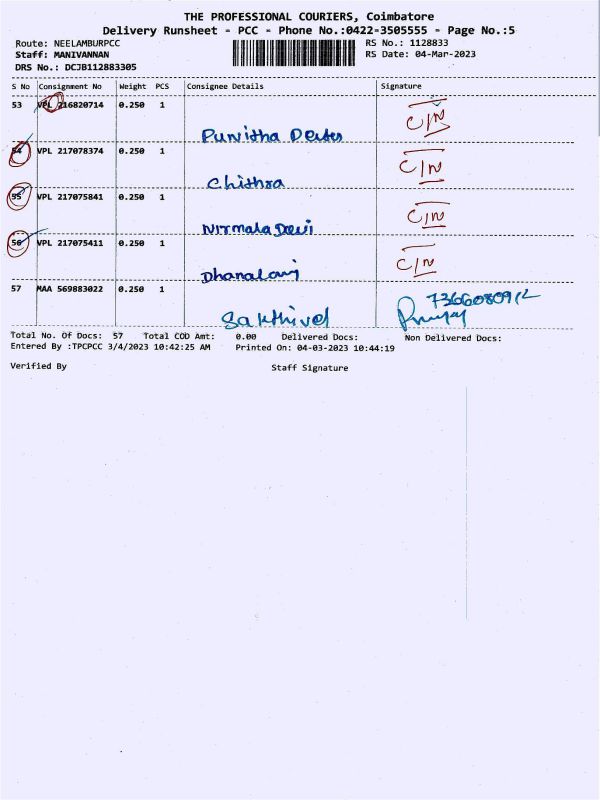 THE PROFESSIONAL COURIERS, Coimbatore
Delivery Runsheet - PCC - Phone No.:0422-3505555 - Page No.:5
Route: NEELAMBURPCC RS No.: 1128833
Staff: MANIVANNAN RS Date: 04-Mar-2023
DRS No.: DCJB112883305
S No Consignment No Weight PCS Consignee Details Signature
53 VPL 216820714 0.250 1 C/N
Punitha
54 VPL 217078374 0.250 1 C/N
Chithra
55 VPL 217075841 0.250 1 C/N
Nirmala Devi
56 VPL 217075411 0.250 1 C/N
57 MAA 569883022 0.250 1
Sakthivel
Total No. Of Docs: 57 Total COD Amt: 0.00 Delivered Docs: Non Delivered Docs:
Entered By :TPCPCC 3/4/2023 10:42:25 AM Printed On: 04-03-2023 10:44:19
Verified By Staff Signature